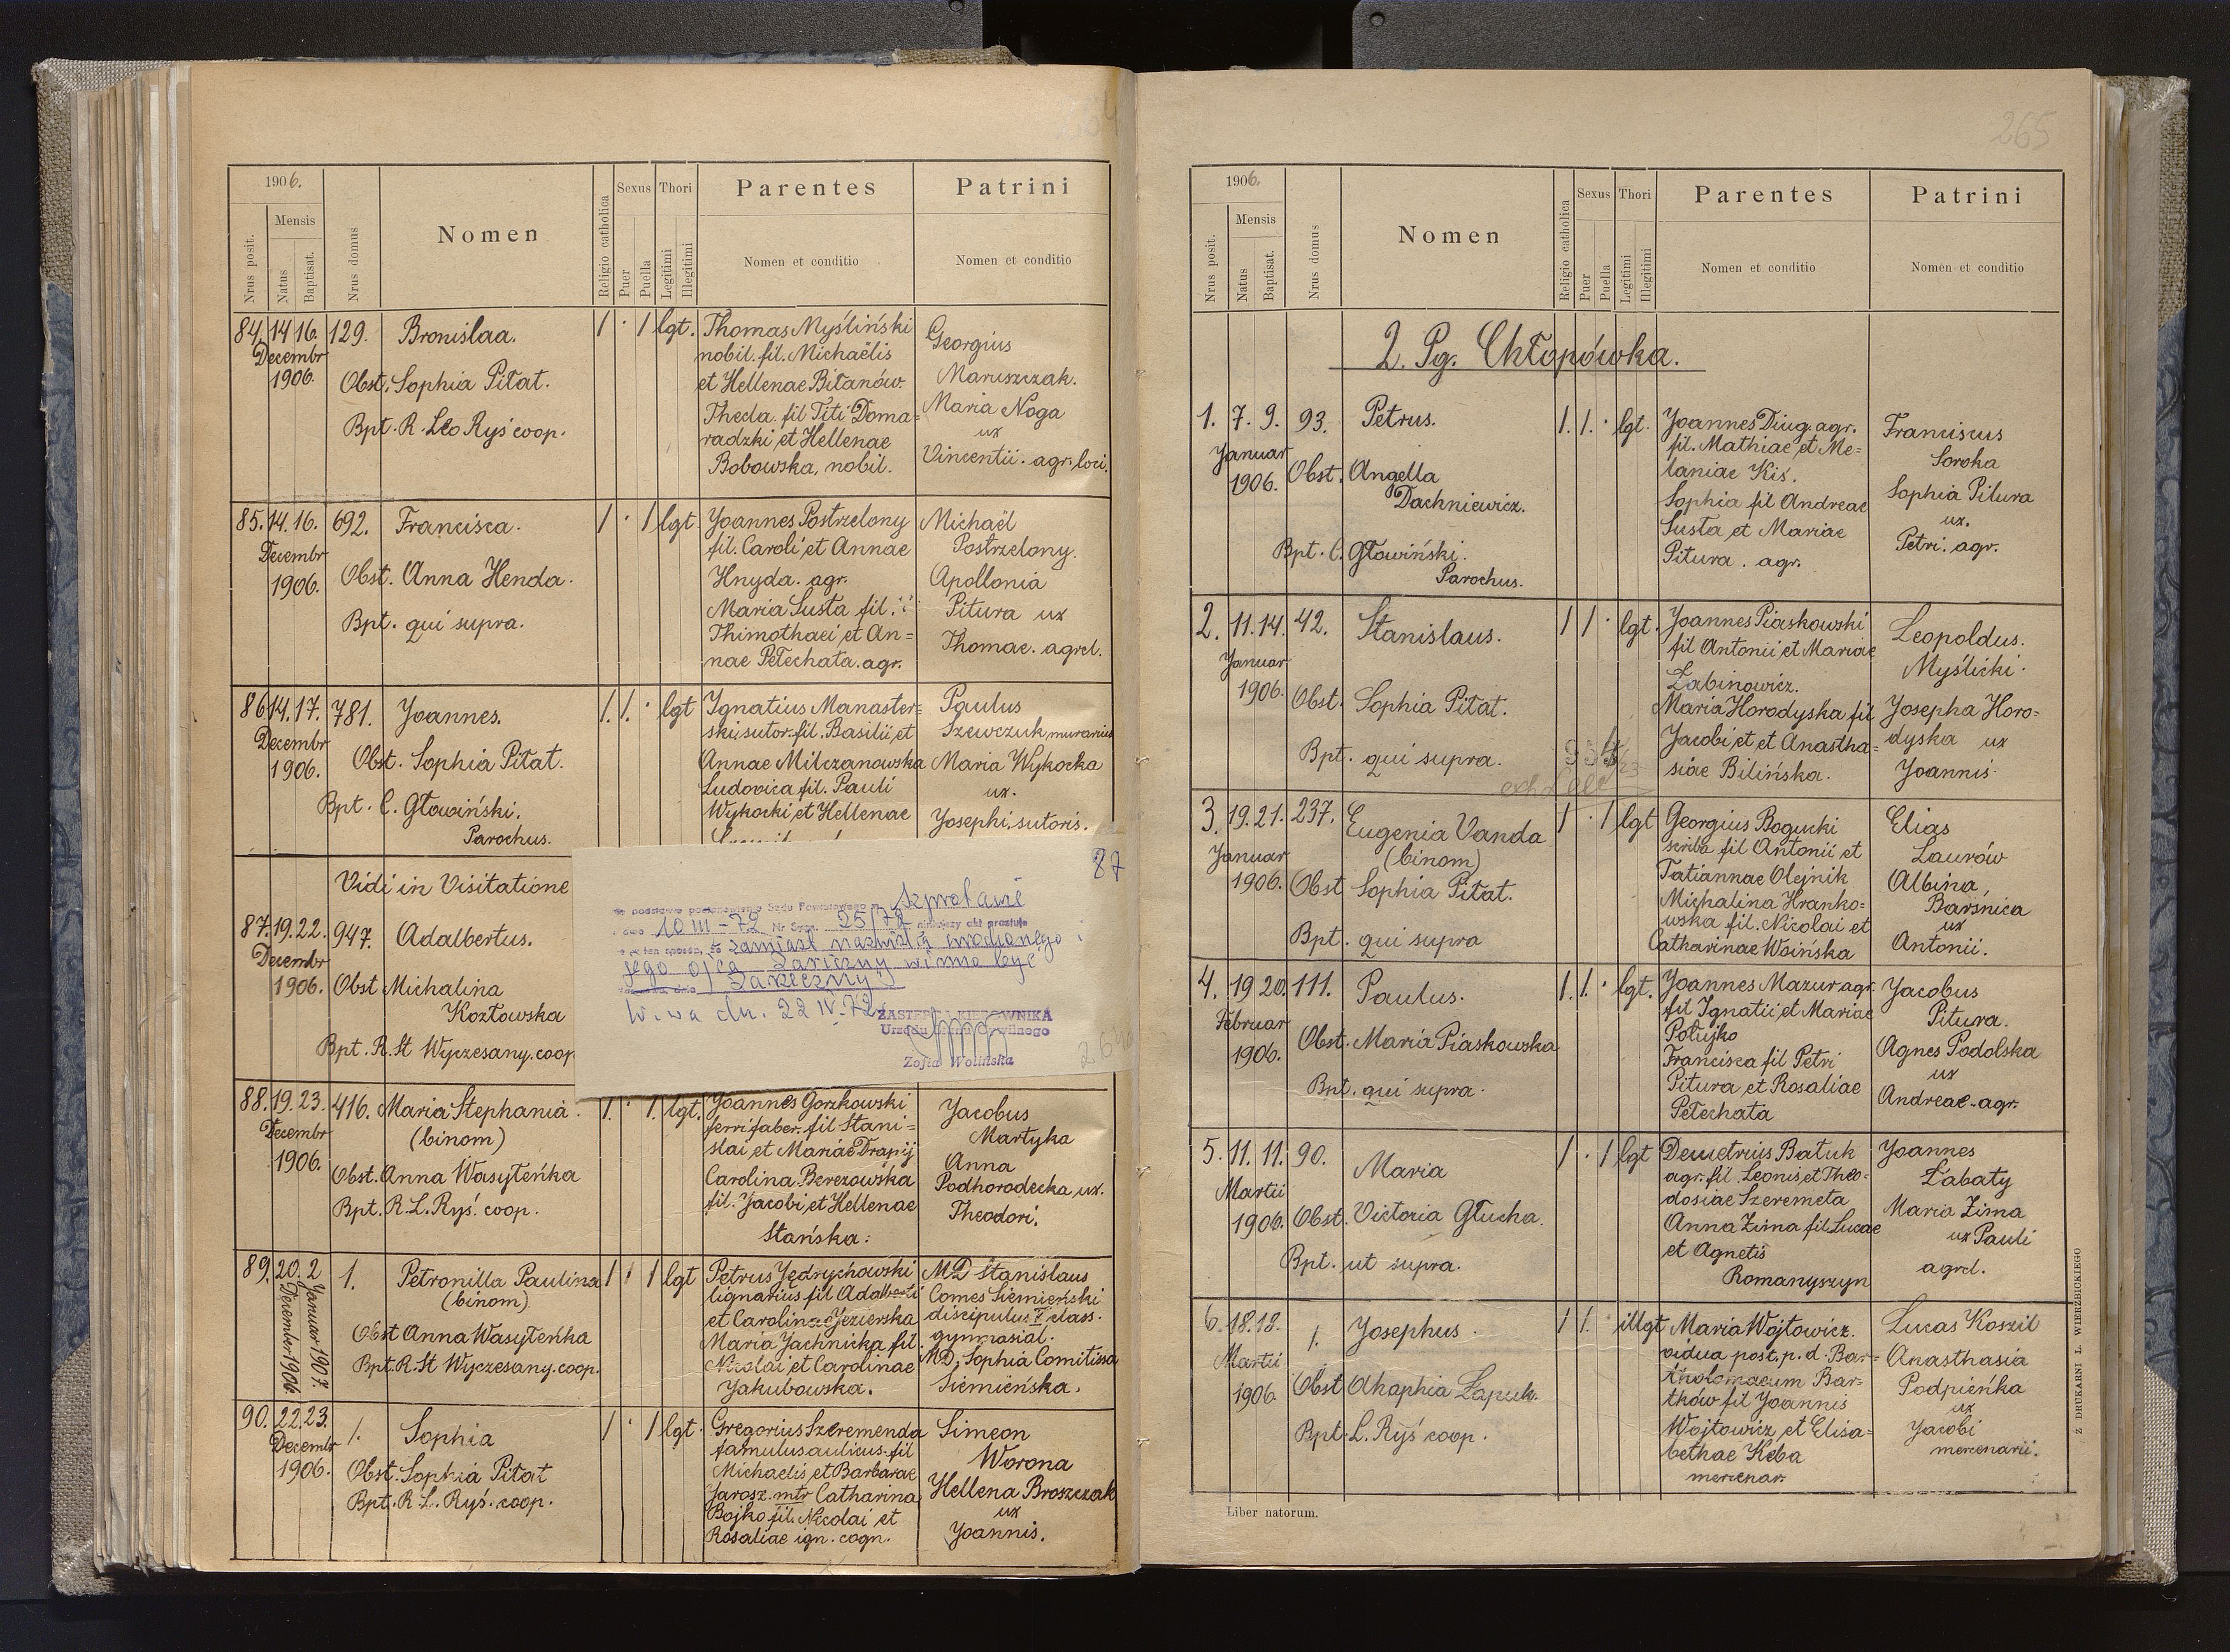 1906.
Nrus posit.
Mensis
Natus
Baptisat.
Nrus domus
Nomen
Religio catholica
Sexus
Puer
Puella
Thori
Legitimi
Illegitimi
Parentes
Nomen et conditio
Patrini
Nomen et conditio
84. 14 16. 129. Bronislaa. 1 · 1 lgt.
Decembr
1906.
Obst. Sophia Pitat.
Bpt. R. Leo Ryś coop.
Thomas Myśliński
nobil. fil. Michaëlis
et Hellenae Bitanów.
Theda. fil Titi Doma=
radzki et Hellenae
Bobowska, nobil.
Georgius
Maruszczak.
Maria Noga
ux
Vincentii. agr. loci.
85. 14. 16. 692. Francisca. 1 · 1 lgt.
Decembr
1906.
Obst. Anna Henda.
Bpt. qui supra.
Joannes Postrzelony
fil. Caroli et Annae
Hnyda. agr.
Maria Susta fil.
Thimothaei et An=
nae Petechata. agr.
Michaël
Postrzelony.
Apollonia
Pitura ux
Thomae. agrcl.
86. 14. 17. 781. Joannes. 1. 1. · lgt
Decembr
1906.
Obst. Sophia Pitat.
Bpt. C. Głowiński.
Parochus.
Ignatius Manaster=
ski sutor. fil. Basilii et
Annae Milczanowska
Ludovica fil. Pauli
Wykocki et Hellenae
Paulus
Szewczuk murarius
Maria Wykocka
ux.
Josephi, sutoris.
Vidi in Visitatione
87. 19. 22. 947. Adalbertus.
Decembr
1906.
Obst Michalina
Kozłowska
Bpt. R. St Wyczesany. coop
87
Na podstawie postanowienia Sądu Powiatowego w Szprotawie
z dnia 10 III - 72 Nr Spr. 25/72 niniejszy akt prostuje
się w ten sposób, że zamiast nazwiska urodzonego i
jego ojca Zariczny winno być
Zarzeczny
W-wa dn. 22 IV. 72
ZASTĘPCA KIEROWNIKA
Urzędu Stanu Cywilnego
Zofia Wolińska
88. 19. 23. 416. Maria Stephania. 1. · 1. lgt.
Decembr
1906.
(binom)
Obst. Anna Wasyleńka
Bpt. R. L. Ryś. coop.
Joannes Gorzkowski
ferrifaber. fil Stani=
slai et Mariae Drapij
Carolina Berezowska
fil. Jacobi et Hellenae
Stańska.
Jacobus
Martyka
Anna
Podhorodecka ux.
Theodori.
89. 20. 2 1. Petronilla Paulina 1 · 1 lgt
December 1906
Januar 1907.
(binom)
Obst Anna Wasyleńka
Bpt. R. St Wyczesany. coop.
Petrus Jędrychowski
lignarius fil Adalberti
et Carolinae Jezierska
Maria Jachnicka fil.
Nicolai et Carolinae
Jakubowska.
MD Stanislaus
Comes Siemieński
discipulus V class.
gymnasial.
MD, Sophia Comitissa
Siemieńska.
90. 22. 23. 1. Sophia 1 · 1 lgt.
Decembr
1906.
Obst. Sophia Pitat
Bpt. R L. Ryś. coop.
Gregorius Szeremenda
famulus aulicus. fil
Michaelis et Barbarae
Jarosz. mtr Catharina
Bojko fil. Nicolai et
Rosaliae ign. cogn.
Simeon
Worona
Hellena Broszczak
ux
Joannis.
265
1906.
Nrus posit.
Mensis
Natus
Baptisat.
Nrus domus
Nomen
Religio catholica
Sexus
Puer
Puella
Thori
Legitimi
Illegitimi
Parentes
Nomen et conditio
Patrini
Nomen et conditio
2. Pg. Chłopówka.
1. 7. 9. 93. Petrus. 1. 1. · lgt.
Januar
1906.
Obst. Angella
Dachniewicz.
Bpt. C. Głowiński.
Parochus.
Joannes Diug. agr.
fil. Mathiae et Me=
laniae Kis.
Sophia fil Andreae
Susta et Mariae
Pitura. agr.
Franciscus
Soroka
Sophia Pitura
ux.
Petri. agr.
2. 11. 14. 42. Stanislaus. 1 1 · lgt.
Januar
1906.
Obst. Sophia Pitat.
Bpt. qui supra.
Joannes Piaskowski
fil Antonii et Mariae
Łabinowicz.
Maria Horodyska fil
Jacobi et et Anastha=
siae Bilińska.
Leopoldus.
Myślicki.
Josepha Horo=
dyska ux
Joannis.
3. 19. 21. 237. Eugenia Vanda 1 · 1 lgt
Januar
1906.
(binom)
Obst Sophia Pitat.
Bpt. qui supra
Georgius Bogucki
scriba fil Antonii et
Tatiannae Olejnik
Michalina Hranko=
wska fil. Nicolai et
Catharinae Woińska
Elias
Laurów
Albina,
Barsnica
ux
Antonii.
4. 19 20. 111. Paulus. 1. 1. · lgt.
Februar
1906.
Obst. Maria Piaskowska
Bpt. qui supra.
Joannes Mazur agr.
fil Ignatii et Mariae
Połujko
Francisca fil Petri
Pitura et Rosaliae
Petechata
Jacobus
Pitura.
Agnes Podolska
ux
Andreae. agr.
5. 11. 11. 90. Maria 1 · 1 lgt
Martii
1906.
Obst. Victoria Głucha.
Bpt. ut supra.
Demetrius Batuk
agr. fil. Leonis et Theo=
dosiae Szeremeta
Anna Zima fil Lucae
et Agnetis
Romanyszyn
Joannes
Łabaty
Maria Zima
ux Pauli
agrcl.
6. 18. 18. 1. Josephus. 1 1. · illgt
Martii
1906.
Obst Ahaphia Łapuk.
Bpt. L. Ryś coop.
Maria Wojtowicz.
vidua post. p. d. Bar=
tholomaeum Bar=
tków fil Joannis
Wojtowicz et Elisa=
bethae Keba
mercenar.
Lucas Koszil
Anasthasia
Podpieńka
ux
Jacobi
mercenarii.
Liber natorum.
Z DRUKARNI L. WIERZBICKIEGO